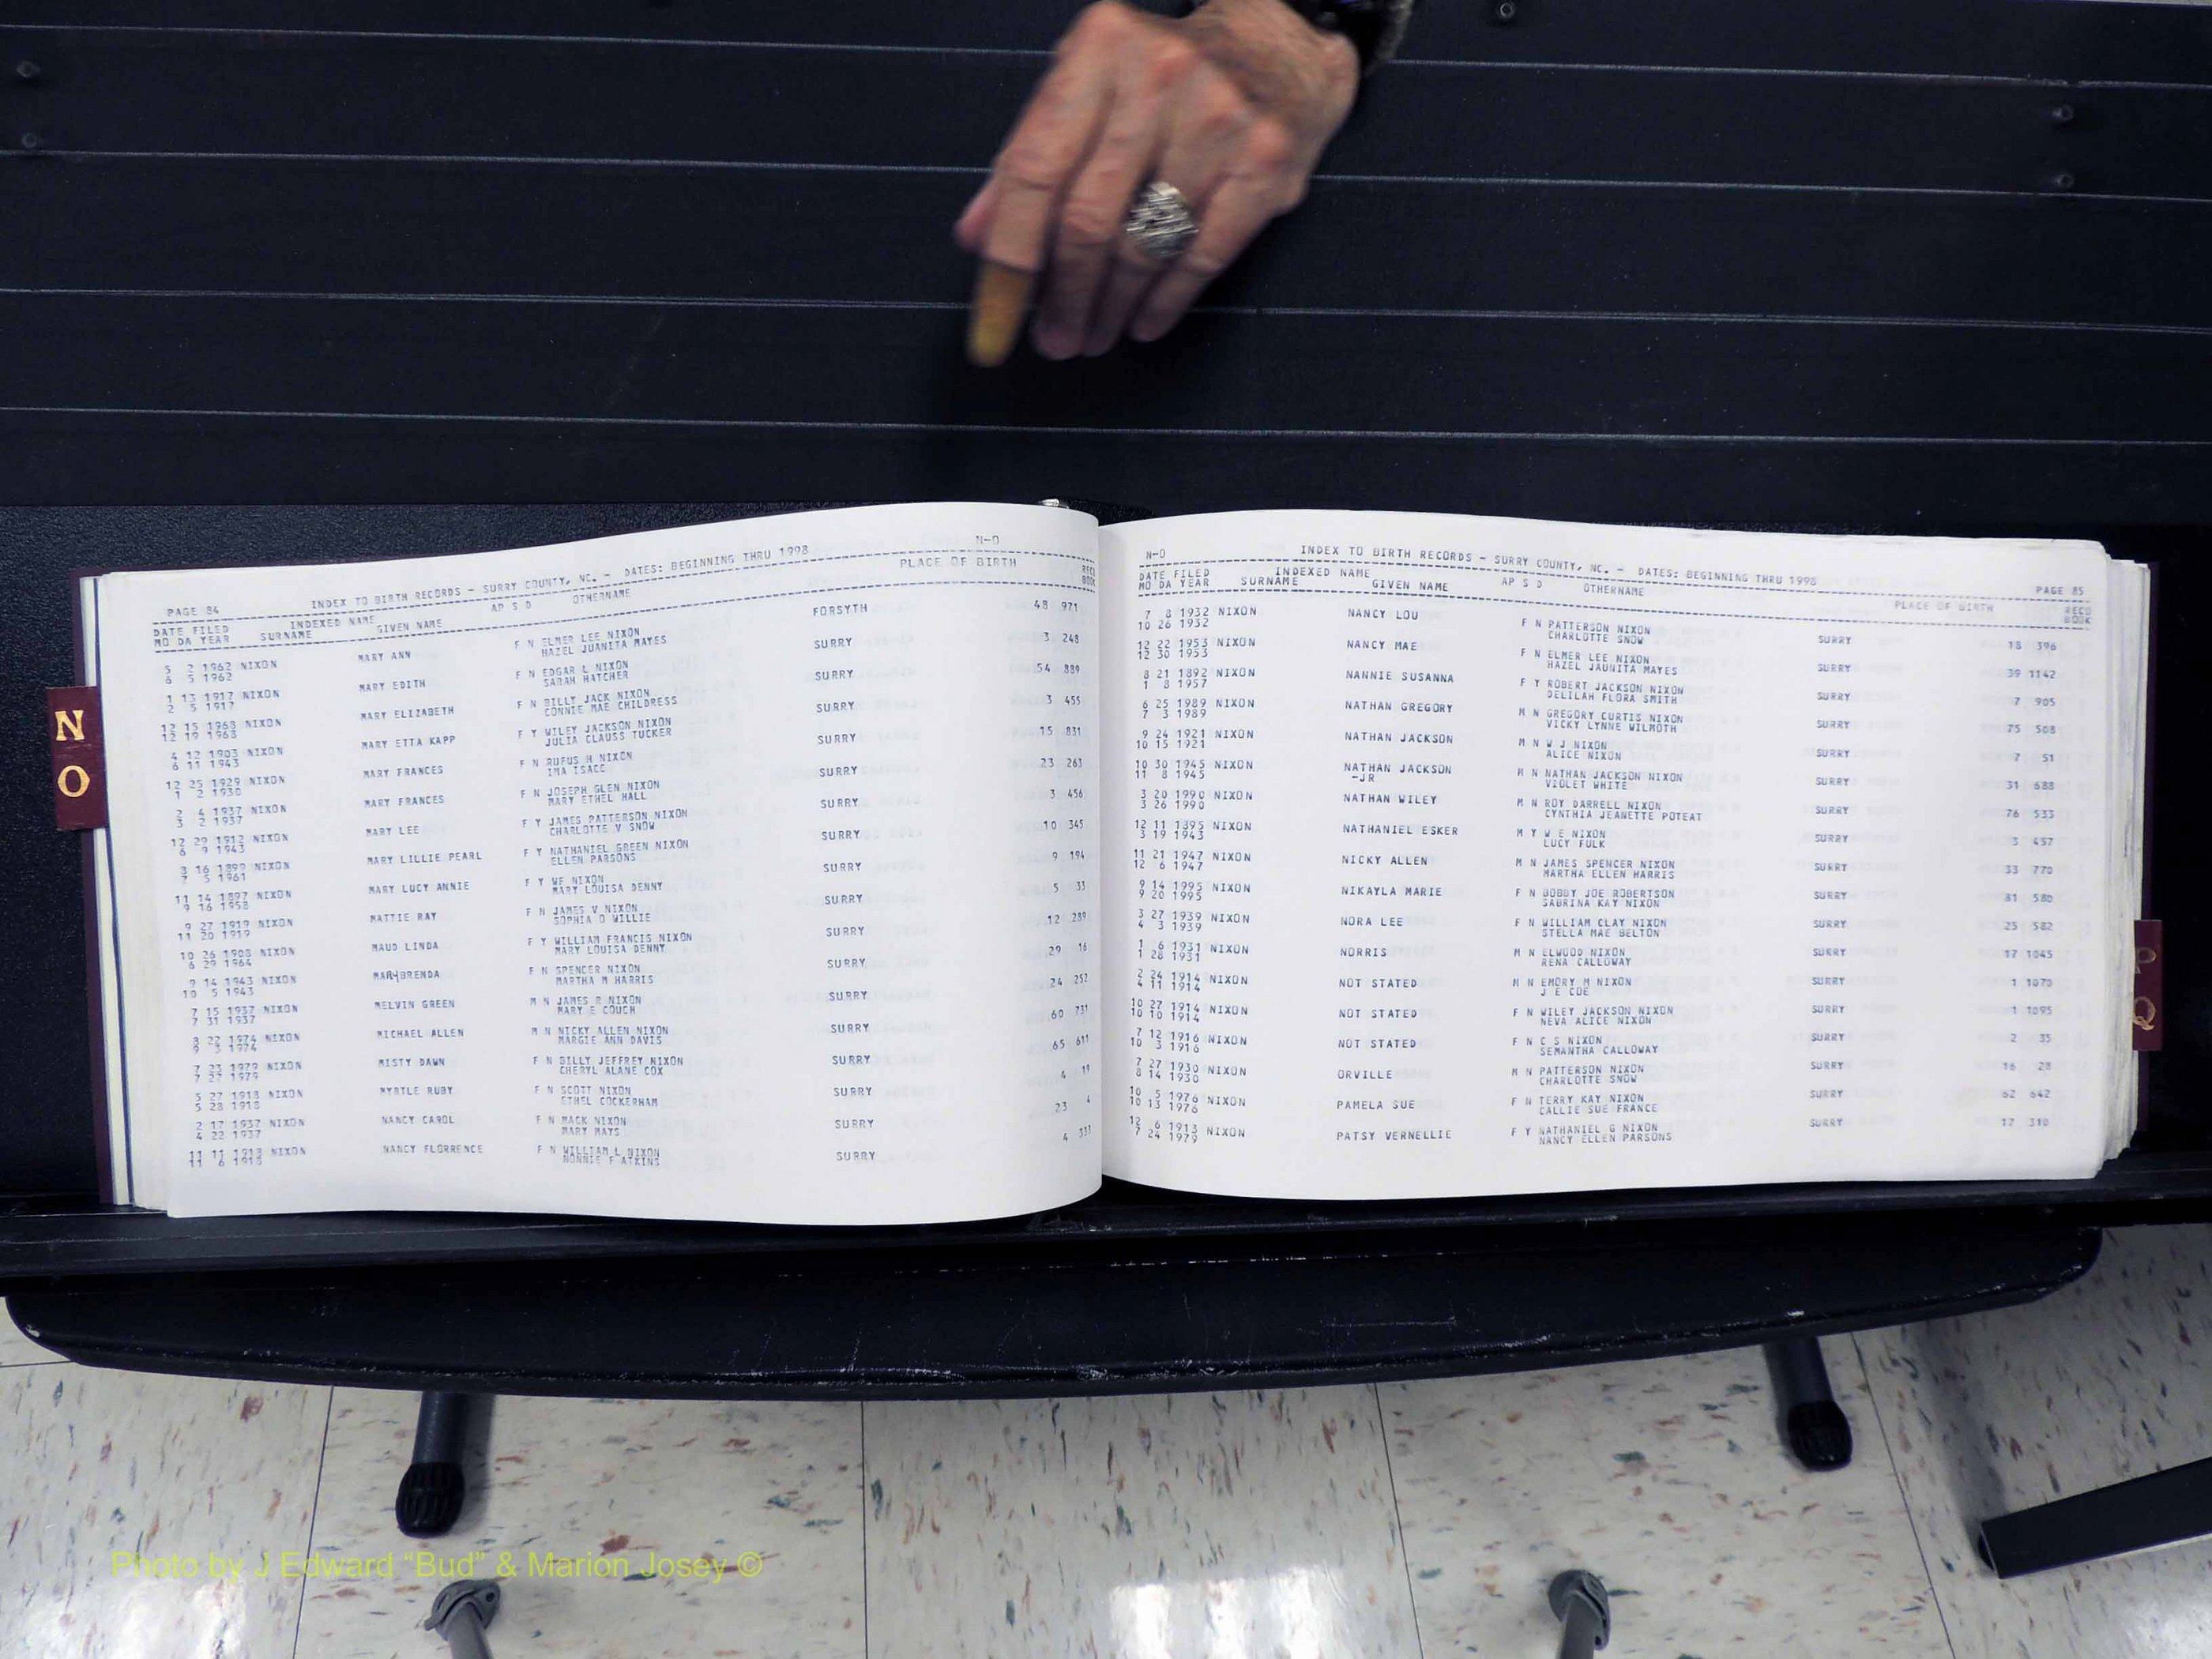 N
O
PAGE 84 INDEX TO BIRTH RECORDS - SURRY COUNTY, NC. - DATES: BEGINNING THRU 1998 N-O
DATE FILED INDEXED NAME AP S D OTHERNAME PLACE OF BIRTH
MO DA YEAR SURNAME GIVEN NAME
5 2 1962 NIXON MARY ANN F N ELMER LEE NIXON FORSYTH 48 971
6 5 1962 HAZEL JUANITA MAYES
1 13 1917 NIXON MARY EDITH F N EDGAR L NIXON SURRY 3 248
2 5 1917 SARAH HATCHER
12 15 1968 NIXON MARY ELIZABETH F N BILLY JACK NIXON SURRY 54 889
12 19 1968 CONNIE MAE CHILDRESS
4 12 1903 NIXON MARY ETTA KAPP F Y WILEY JACKSON NIXON SURRY 3 455
6 11 1943 JULIA CLAUSS TUCKER
12 25 1929 NIXON MARY FRANCES F N RUFUS H NIXON SURRY 15 831
1 2 1930 IMA ISACC
2 4 1937 NIXON MARY FRANCES F N JOSEPH GLEN NIXON SURRY 23 263
3 2 1937 MARY ETHEL HALL
12 29 1912 NIXON MARY LEE F Y JAMES PATTERSON NIXON SURRY 3 456
6 9 1943 CHARLOTTE V SNOW
3 16 1899 NIXON MARY LILLIE PEARL F Y NATHANIEL GREEN NIXON SURRY 10 345
7 5 1961 ELLEN PARSONS
11 14 1897 NIXON MARY LUCY ANNIE F Y WF NIXON SURRY 9 194
9 16 1958 MARY LOUISA DENNY
9 27 1919 NIXON MATTIE RAY F N JAMES V NIXON SURRY 5 33
11 20 1919 SOPHIA O WILLIE
10 26 1908 NIXON MAUD LINDA F Y WILLIAM FRANCIS NIXON SURRY 12 289
6 29 1964 MARY LOUISA DENNY
9 14 1943 NIXON MARYBRENDA F N SPENCER NIXON SURRY 29 16
10 5 1943 MARTHA M HARRIS
7 15 1937 NIXON MELVIN GREEN M N JAMES R NIXON SURRY 24 252
7 31 1937 MARY E COUCH
8 22 1974 NIXON MICHAEL ALLEN M N NICKY ALLEN NIXON SURRY 60 731
9 3 1974 MARGIE ANN DAVIS
7 23 1979 NIXON MISTY DAWN F N BILLY JEFFREY NIXON SURRY 65 611
7 27 1979 CHERYL ALANE COX
5 27 1918 NIXON MYRTLE RUBY F N SCOTT NIXON SURRY 4 19
5 28 1918 ETHEL COCKERHAM
2 17 1937 NIXON NANCY CAROL F N MACK NIXON SURRY 23 4
4 22 1937 MARY MAYS
11 11 1918 NIXON NANCY FLORRENCE F N WILLIAM L NIXON SURRY 4 331
11 6 1918 NONNIE F ATKINS
N-O INDEX TO BIRTH RECORDS - SURRY COUNTY, NC. - DATES: BEGINNING THRU 1998 PAGE 85
DATE FILED INDEXED NAME AP S D OTHERNAME PLACE OF BIRTH RECD
MO DA YEAR SURNAME GIVEN NAME BOOK
7 8 1932 NIXON NANCY LOU F N PATTERSON NIXON SURRY 18 396
10 26 1932 CHARLOTTE SNOW
12 22 1953 NIXON NANCY MAE F N ELMER LEE NIXON SURRY 39 1142
12 30 1953 HAZEL JAUNITA MAYES
8 21 1892 NIXON NANNIE SUSANNA F Y ROBERT JACKSON NIXON SURRY 7 905
1 8 1957 DELILAH FLORA SMITH
6 25 1989 NIXON NATHAN GREGORY M N GREGORY CURTIS NIXON SURRY 75 508
7 3 1989 VICKY LYNNE WILMOTH
9 24 1921 NIXON NATHAN JACKSON M N W J NIXON SURRY 7 51
10 15 1921 ALICE NIXON
10 30 1945 NIXON NATHAN JACKSON M N NATHAN JACKSON NIXON SURRY 31 688
11 8 1945 -JR VIOLET WHITE
3 20 1990 NIXON NATHAN WILEY M N ROY DARRELL NIXON SURRY 76 533
3 26 1990 CYNTHIA JEANETTE POTEAT
12 11 1895 NIXON NATHANIEL ESKER M Y W E NIXON SURRY 3 457
3 19 1943 LUCY FULK
11 21 1947 NIXON NICKY ALLEN M N JAMES SPENCER NIXON SURRY 33 770
12 6 1947 MARTHA ELLEN HARRIS
9 14 1995 NIXON NIKAYLA MARIE F N BOBBY JOE ROBERTSON SURRY 81 580
9 20 1995 SABRINA KAY NIXON
3 27 1939 NIXON NORA LEE F N WILLIAM CLAY NIXON SURRY 25 582
4 3 1939 STELLA MAE BELTON
1 6 1931 NIXON NORRIS M N ELWOOD NIXON SURRY 17 1045
1 28 1931 RENA CALLOWAY
2 24 1914 NIXON NOT STATED M N EMORY M NIXON SURRY 1 1070
4 11 1914 J E COE
10 27 1914 NIXON NOT STATED F N WILEY JACKSON NIXON SURRY 1 1095
10 10 1914 NEVA ALICE NIXON
7 12 1916 NIXON NOT STATED F N C S NIXON SURRY 2 35
10 3 1916 SEMANTHA CALLOWAY
7 27 1930 NIXON ORVILLE M N PATTERSON NIXON SURRY 16 28
8 14 1930 CHARLOTTE SNOW
10 5 1976 NIXON PAMELA SUE F N TERRY KAY NIXON SURRY 62 642
10 13 1976 CALLIE SUE FRANCE
12 6 1913 NIXON PATSY VERNELLIE F Y NATHANIEL G NIXON SURRY 17 310
7 24 1979 NANCY ELLEN PARSONS
Photo by J Edward “Bud” & Marion Josey ©